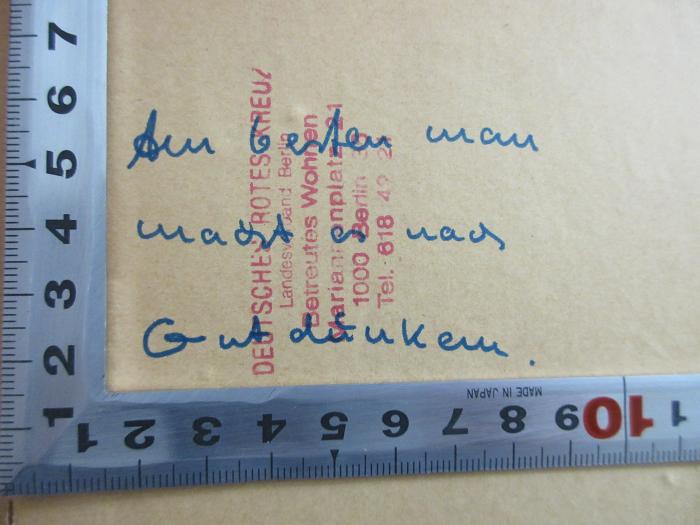 Am besten man
macht es nach
Gutdünken.
DEUTSCHES ROTES KREUZ
Landesverband Berlin
Betreutes Wohnen
Mariannenplatz 21
1000 Berlin 36
Tel. 618 42 21
7
6
5
4
3
2
1
1 2 3 4 5 6 7 8 9 10 1
MADE IN JAPAN